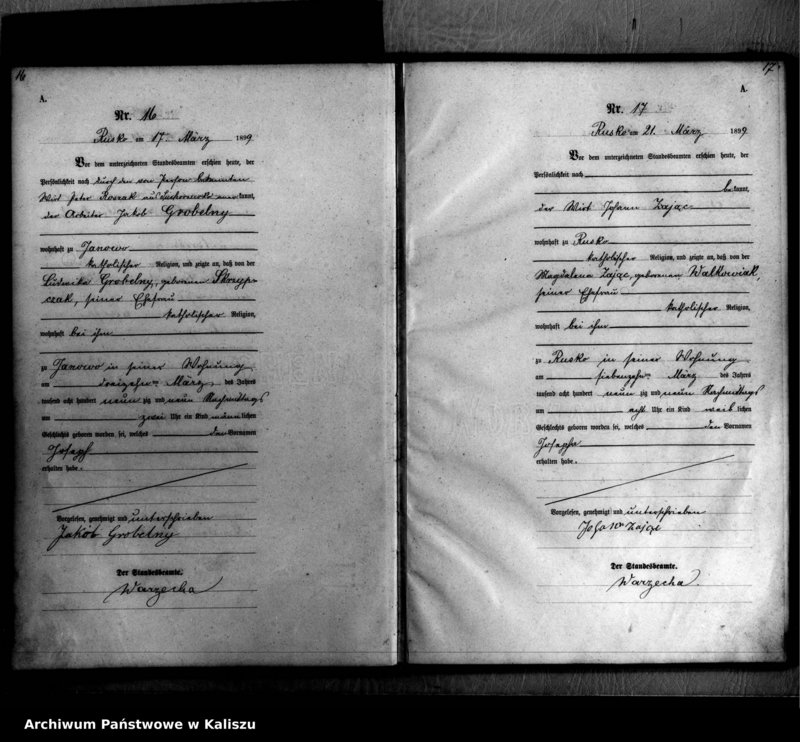 16
A.
Nr. 16
Rusko am 17. März 1899
Vor dem unterzeichneten Standesbeamten erschien heute, der
Persönlichkeit nach durch den von Person bekannten
Wirt Peter Roszak aus anerkannt,
der Arbeiter Jakob Grobelny
wohnhaft zu Janowo
katholischer Religion, und zeigte an, daß von der
Ludwika Grobelny, geborenen Skrzyp-
czak, seiner Ehefrau
katholischer Religion,
wohnhaft bei ihm
zu Janowo in seiner Wohnung
am dreizehnten März des Jahres
tausend acht hundert neunzig und neun Nachmittags
um zwei Uhr ein Kind männlichen
Geschlechts geboren worden sei, welches den Vornamen
Joseph
erhalten habe.
Vorgelesen, genehmigt und unterschrieben
Jakób Grobelny
Der Standesbeamte.
Warzecha
17
A.
Nr. 17
Rusko am 21. März 1899
Vor dem unterzeichneten Standesbeamten erschien heute, der
Persönlichkeit nach
bekannt,
der Wirt Johann Zając
wohnhaft zu Rusko
katholischer Religion, und zeigte an, daß von der
Magdalena Zając, geborenen Walkowiak,
seiner Ehefrau
katholischer Religion,
wohnhaft bei ihm
zu Rusko in seiner Wohnung
am siebenzehnten März des Jahres
tausend acht hundert neunzig und neun Nachmittags
um acht Uhr ein Kind weiblichen
Geschlechts geboren worden sei, welches den Vornamen
Josepha
erhalten habe.
Vorgelesen, genehmigt und unterschrieben
Der Standesbeamte.
Warzecha
Archiwum Państwowe w Kaliszu